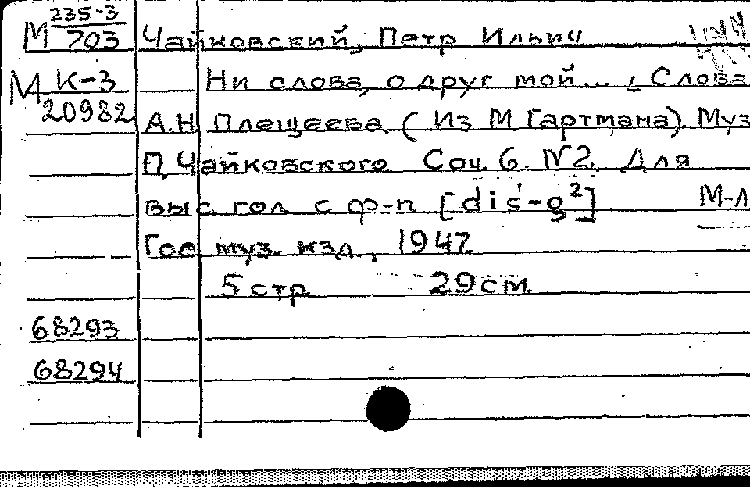 М 235-3
703 Чайковский, Петр Ильич
М К-3 Ни слова, о друг мой... , Слова
20982 А.Н. Плещеева (Из М Гартмана). Муз
П. Чайковского Соч. 6. N2. Для
выс. гол с ф-п [dis'-g²] М-Л
Гос муз. изд., 1947
5 стр 29 см
68293
68294